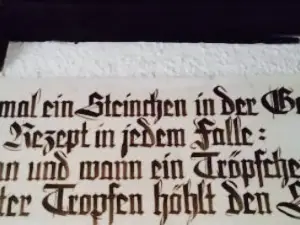 mal ein Steinchen in der G
Rezept in jedem Falle:
n und wann ein Tröpfche
ter Tropfen höhlt den